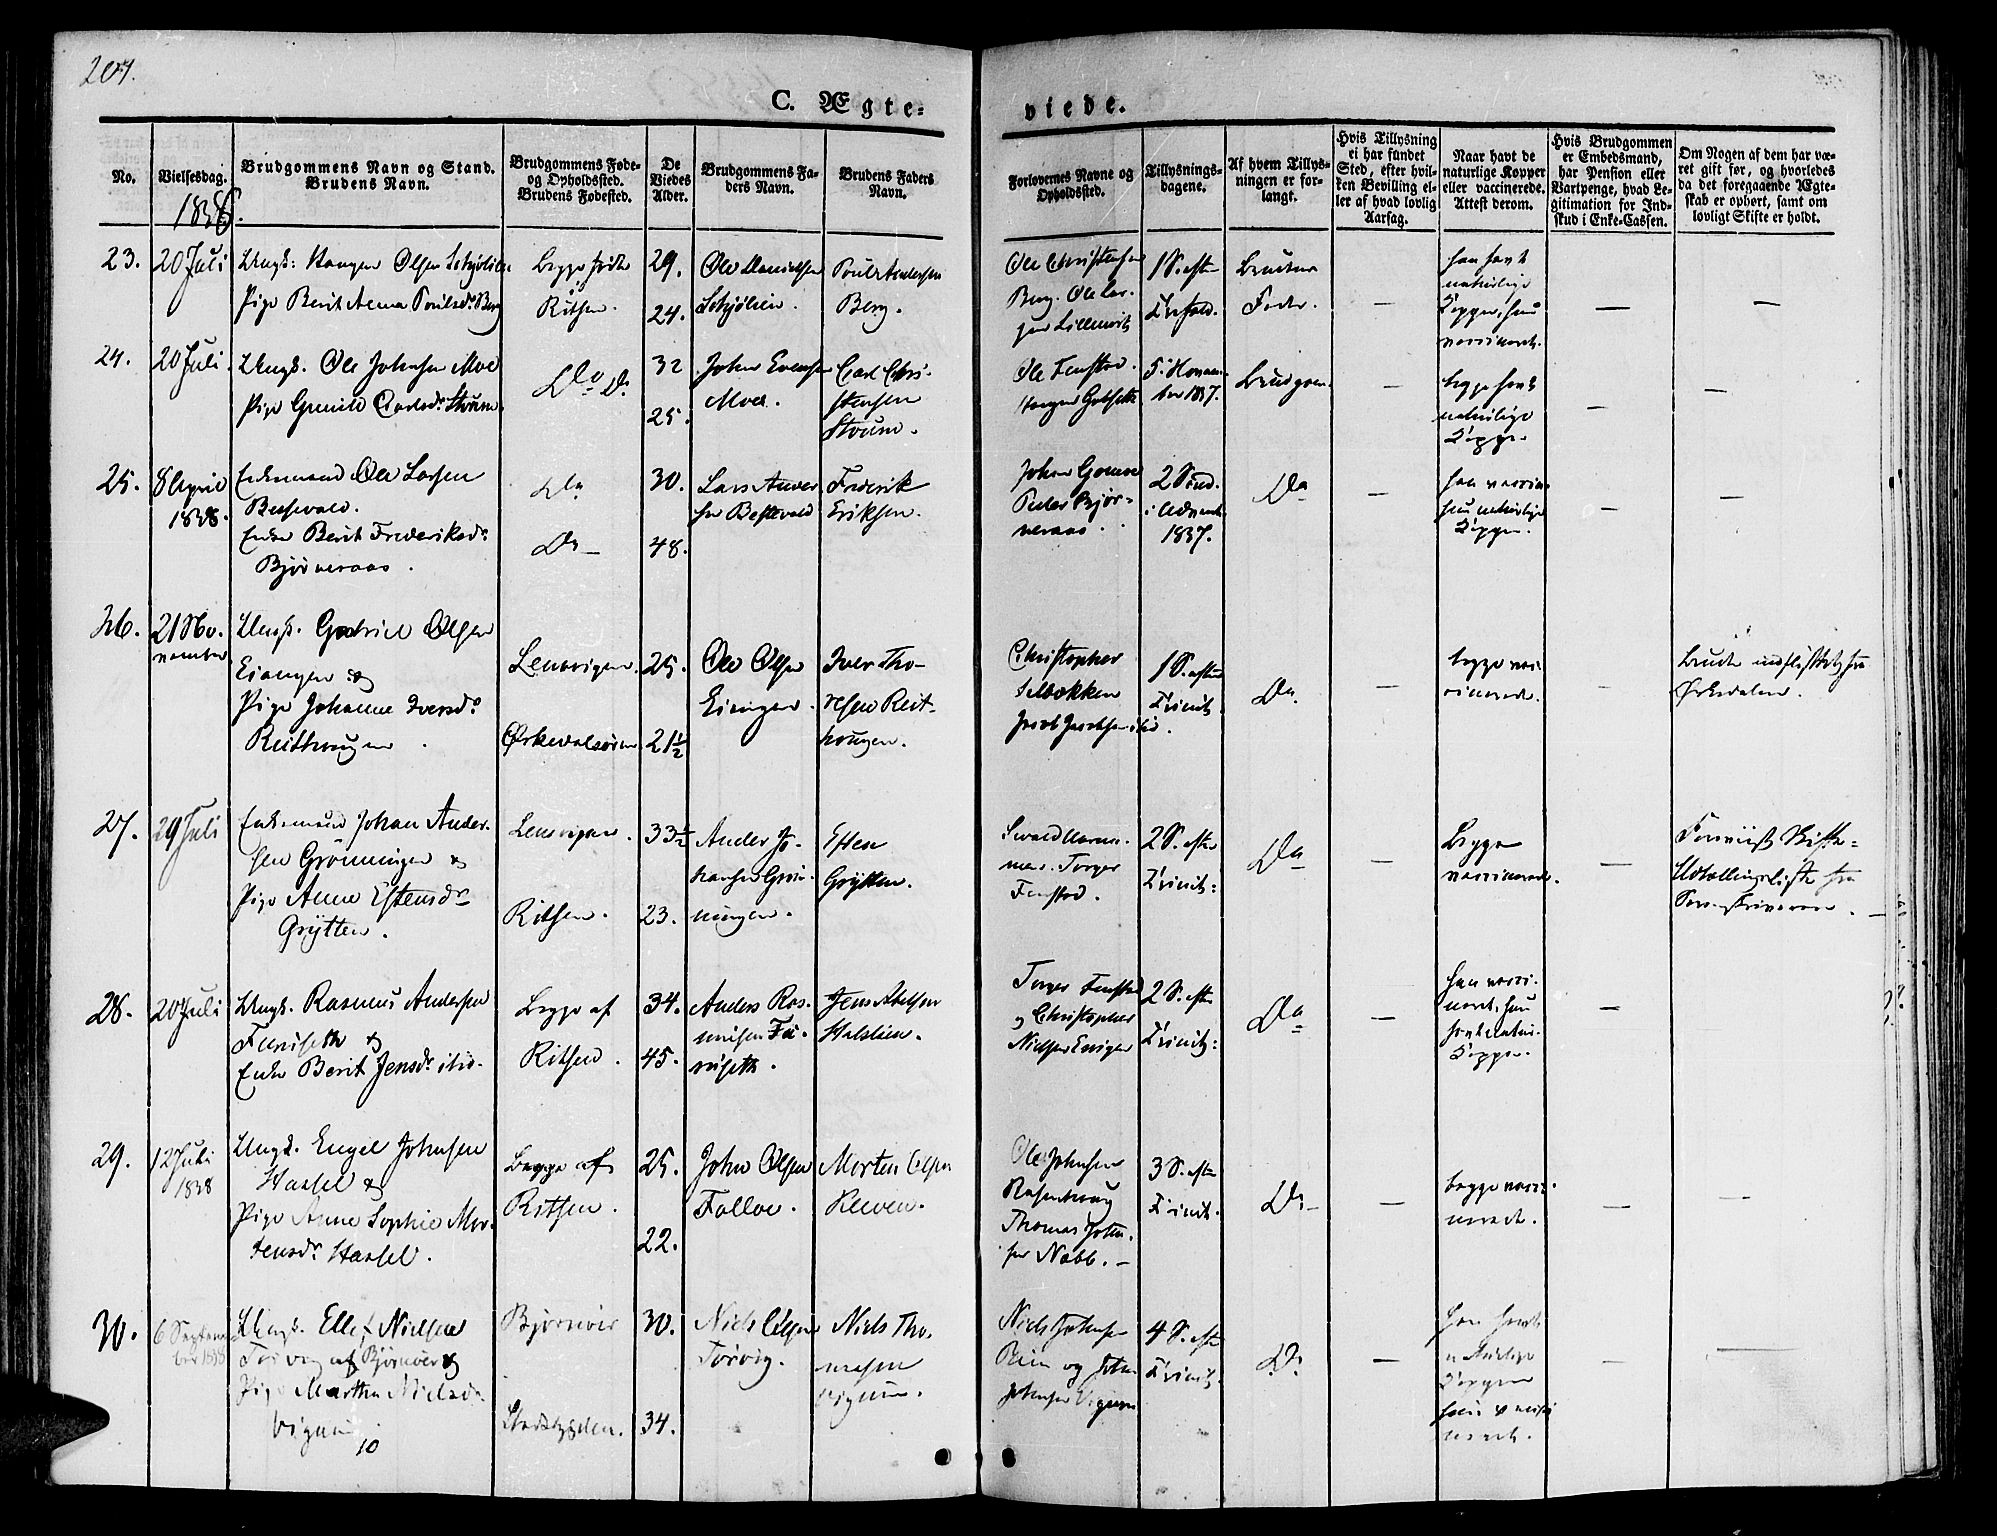 204.
C. Ægte-
viede.
No.
Vielsesdag.
Brudgommens Navn og Stand.
Brudens Navn.
Brudgommens Føde-
og Opholdssted.
Brudens Fødested.
De
Viedes
Alder.
Brudgommens Fa-
ders Navn.
Brudens Faders
Navn.
Forlovernes Navne og
Opholdssted.
Tillysnings-
dagene.
Af hvem Tillys-
ningen er for-
langt.
Hvis Tillysning
ei har fundet
Sted, efter hvil-
ken Bevilling el-
ler af hvad lovlig
Aarsag.
Naar havt de
naturlige Kopper
eller vaccinerede.
Attest derom.
Hvis Brudgommen
er Embedsmand,
har Pension eller
Vartpenge, hvad Le-
gitimation for Ind-
skud i Enke-Cassen.
Om Nogen af dem har væ-
ret gift før, og hvorledes
da det foregaaende Ægte-
skab er ophørt, samt om
lovligt Skifte er holdt.
1838.
23.
20 Juli
Ungk: Haagen Olsen
Pige Berit Anna Poulsdr Berg
Begge fødte
Ritsen.
29.
24.
Ole
Poul Andersen
Berg.
Ole Christensen
Berg. Ole
1 S. efter
Brudens
Fader.
han havt
naturlige
Kopper, hun
vaccineret.
24.
20 Juli.
Ungk. Ole Johnsen Moe
Pige Gunild Carlsdr Strøm.
Do Do
32
25.
John Evensen
Moe.
Carl Chri-
stensen
Strøm.
Ole Fenstad.
5 Novem
ber 1837.
Brudgom.
begge havt
naturlige
Kopper.
25.
8 April
1838.
Enkemand Ole Larsen
Enke Berit Frederiksdr
Bjørneraas.
Do
Do
30.
48.
Lars Ander
sen
Frederik
Eriksen.
Johan
Peder Bjør-
neraas.
2 Sønd.
i Advent
1837.
Do
han vaccin.
hun naturlige
Kopper.
26.
21 No-
vember
Ungk. Gabriel Olsen
Eiangen &
Pige Johanne Iversdr
Reithaugen.
Lensvigen.
Ørkedalsøren
25.
21½
Ole Olsen
Eiangen.
Iver Tho-
resen Reit-
haugen.
Christopher
Selbækken
Jacob Jacobsen ibid.
1 S. efter
Trinit.
Do.
begge vac-
cinerede.
Bruden indflyttet fra
Ørkedalen.
27.
29 Juli
Enkemand Johan Ander-
sen Grønningen &
Pige Anne Estensdr
Grytten.
Lensvigen.
Ritsen.
33½
23.
Anders Jo-
hansen Grøn-
ningen.
Esten
Grytten.
Torger
Fenstad.
2 S. efter
Trinit:
Do
Begge
vaccinerede.
Foreviist Skifte-
Udlægslist fra
Sorenskriveren.
28.
20 Juli
Ungk. Rasmus Andersen
Enke Berit Jensdr ibid.
Begge af
Ritsen.
34.
45.
Anders Ras-
musen
Jens
Torger Fenstad
og Christopher
Nielsen
2 S. efter
Trinit:
Do
han vacci-
neret, hun
havt natur.
Kopper.
29.
12 Juli
1838
Ungk. Engel Johnsen
Hassel &
Pige Anne Sophie Mor-
tensdr Hassel.
Begge af
Ritsen.
25.
22.
John Olsen
Falloe.
Morten Olsen
Reeven.
Ole Johnsen
Rosenhaug
Thomas John-
sen Nabb.
3 S. efter
Trinit.
Do
begge vacci-
nerede.
30.
6 Septem-
ber 1838
Ungk. Ellef Nielsen
Torvig af Bjørnør &
Pige Martha Nielsdr
Vigum
10
Bjørnør
Stadsbygden.
30.
34.
Niels Olsen
Torvig.
Niels Tho-
mesen
Vigum.
Niels Johnsen
Rein og John
Johnsen Vigum
4 S. efter
Trinit.
Do
han havt
naturlige
Kopper
hun vacci-
neret.